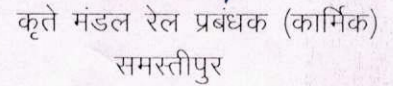 कृते मंडल रेल प्रबंधक (कार्मिक)
समस्तीपुर